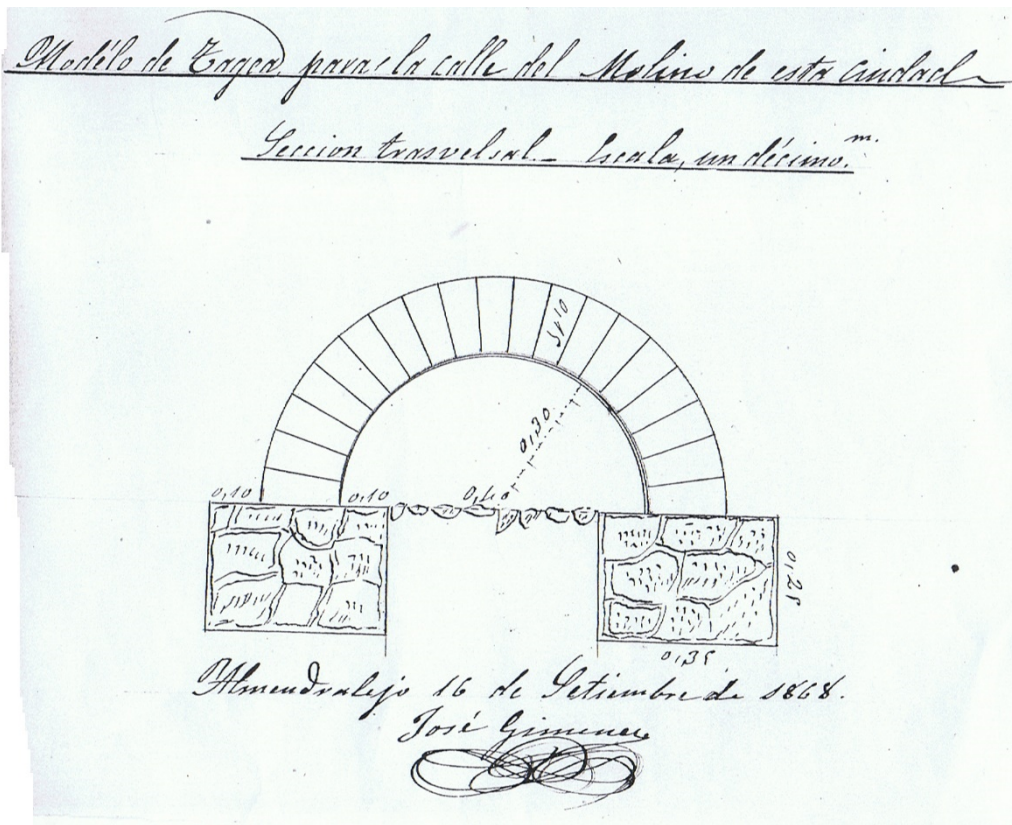 Modélo de Tagea para la calle del Molino de esta ciudad
Seccion trasvelsal_ Escala, un décimo.m.
0,15
0,30
0,10
0,10
0,40
0,25
0,35
Almendralejo 16 de Setiembre de 1868.
José Gimenez